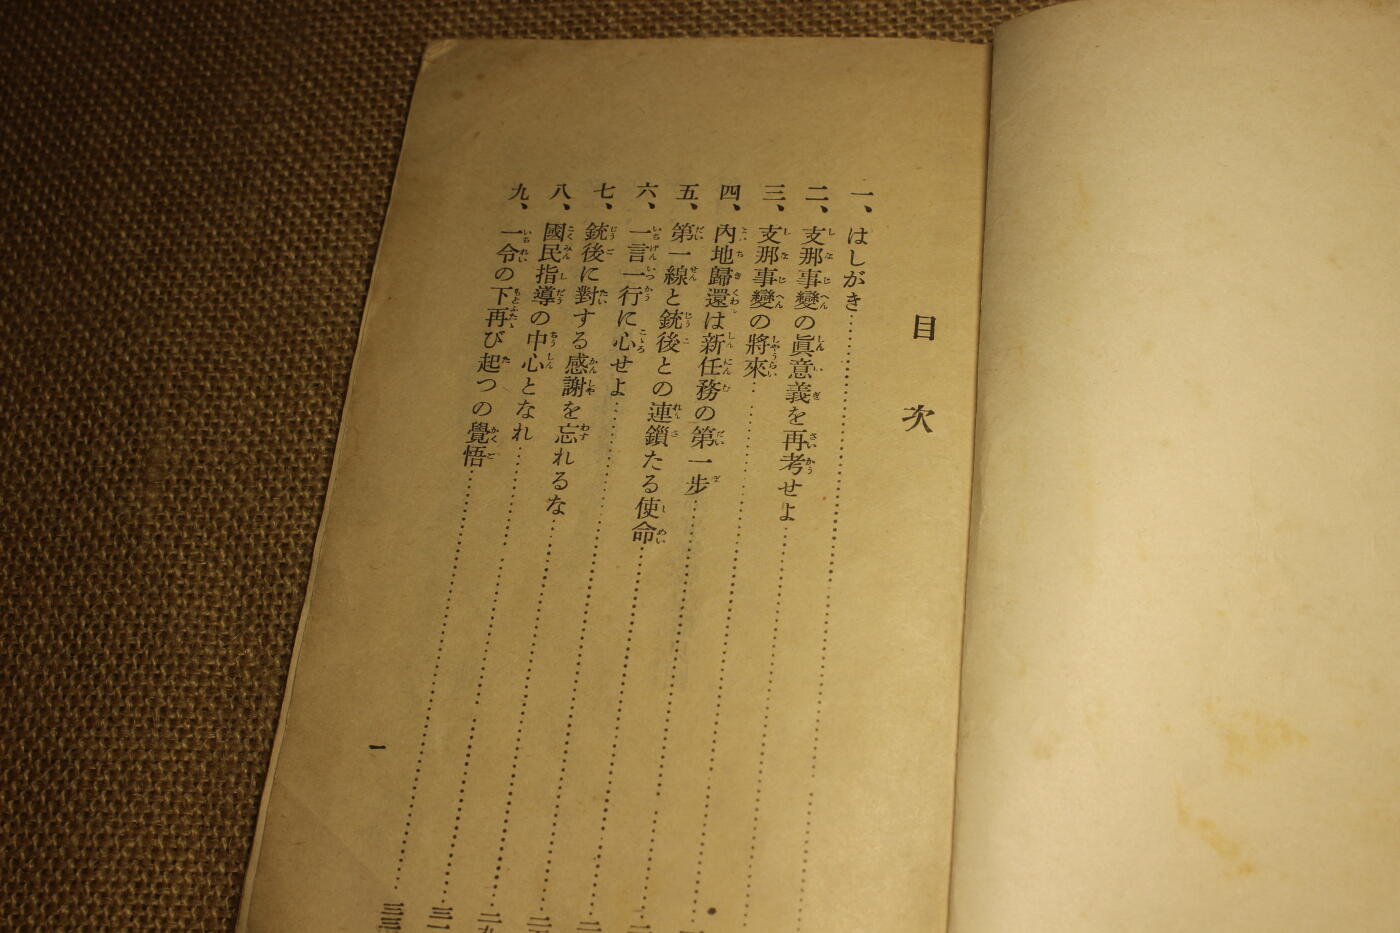 目次
一、はしがき
二、支那事變の眞意義を再考せよ
三、支那事變の將來
四、內地歸還は新任務の第一步
五、第一線と銃後との連鎖たる使命
六、一言一行に心せよ
七、銃後に對する感謝を忘れるな
八、國民指導の中心となれ
九、一令の下再び起つの覺悟
一